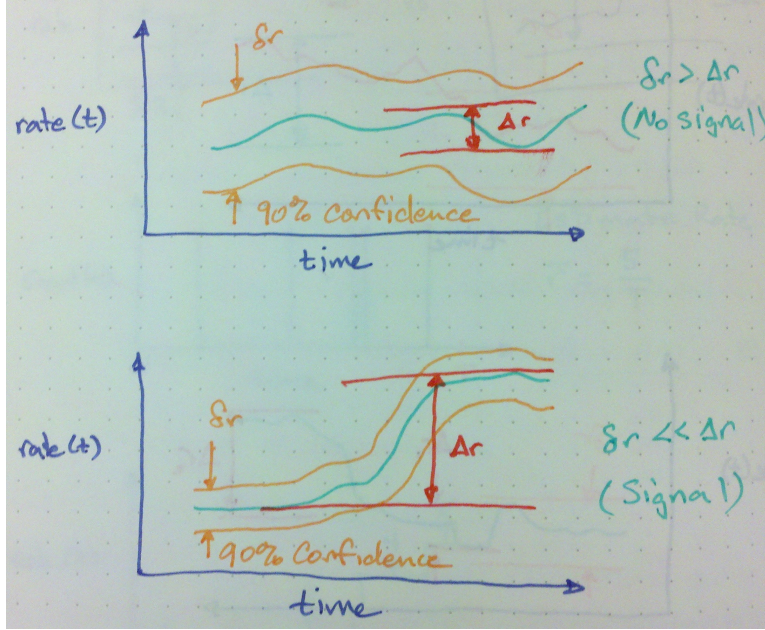 δr
δr > Δr
rate(t)
Δr
(No signal)
90% Confidence
time
δr
rate(t)
Δr
δr << Δr
(Signal)
90% Confidence
time